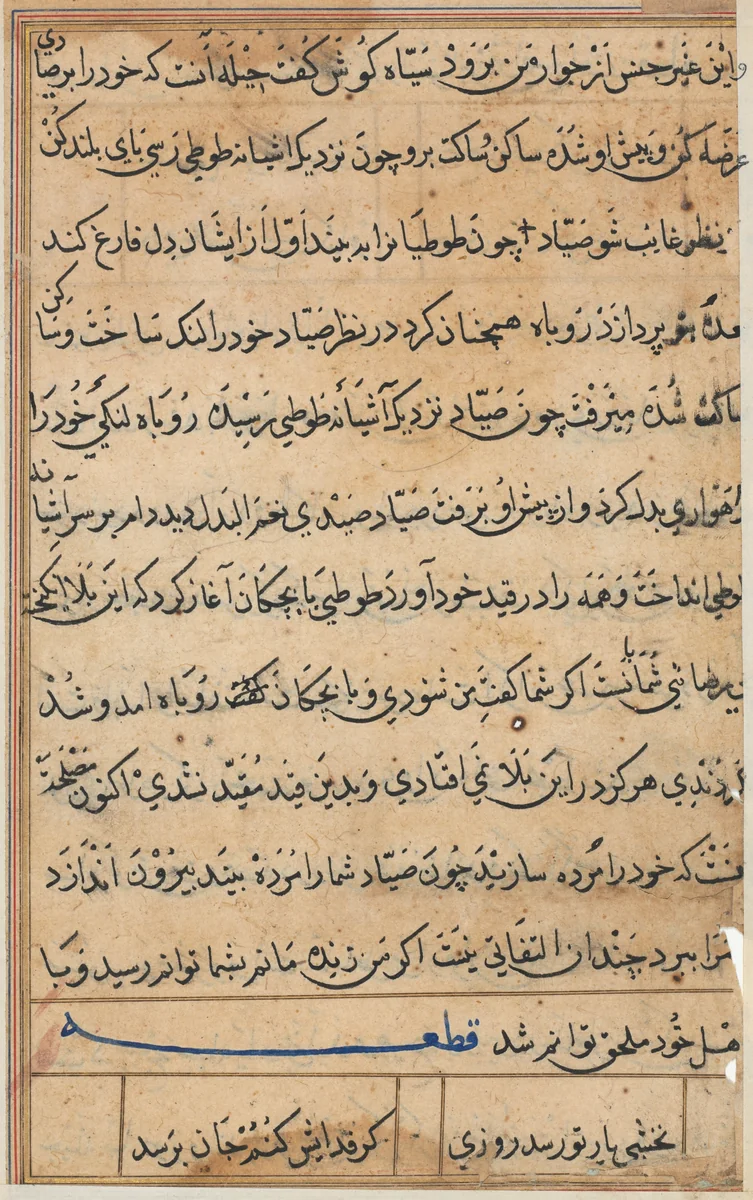 واین غیر جنس از جوار من برود سیاه گوش گفت حیله آنست که خود را بر صیادی
عرضه کن و پیش او شده ساکن و ساکت برو چون نزدیک اشیانه طوطی رسی پای بلند کن
نظر غایب شو صیاد چون طوطیانرا به بیند اول از ایشان دل فارغ کند
بعده بتو پردازد روباه همچنان کرد در نظر صیاد خود را لنک ساخت و ساکن
ساکت شده میرفت چون صیاد نزدیک آشیانه طوطی رسیده روباه لنکی خود را
راهواری بدل کرد و از پیش او برفت صیاد صیدی نعم البدل دید دام بر سر آشیانه
طوطی انداخت و همه را در قید خود آورد طوطی با بچکان آغاز کرد که این بلا انکیخته
بی رضائی شما بانست اکر شما کفت من شنودی و با بچکان روباه امد و شد
نکردندی هرکز در این بلا نمی افتادی و بدین قید مقید نشدی اکنون مصلحت
آنست که خود را مرده سازید چون صیاد شما را مرده بیند بیرون اندازد
مرا ببرد چندان التفاتی نیست اکر من زنده مانم بشما توانم رسید و با
اهل خود ملحق توانم شد قطعه
نخشبی یار تو رسد روزی کر فدایش کنم جان برسد